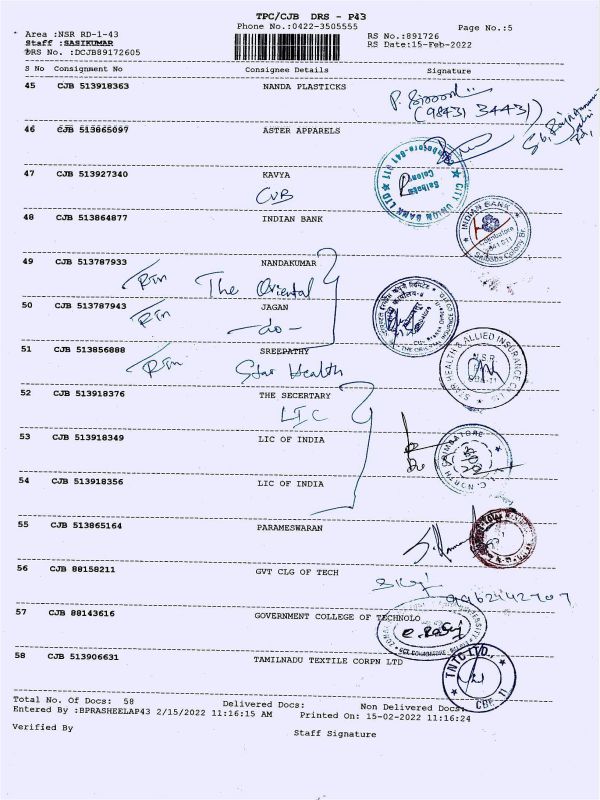 TPC/CJB DRS - P43
Phone No.:0422-3505555
Page No.:5
Area :NSR RD-1-43
Staff :SASIKUMAR
DRS No. :DCJB89172605
RS No.:891726
RS Date:15-Feb-2022
S No Consignment No Consignee Details Signature
45 CJB 513918363 NANDA PLASTICKS
(98431 34431)
46 CJB 513865097 ASTER APPARELS
47 CJB 513927340 KAVYA
CUB
CITY UNION BANK LTD
Saibaba Colony
48 CJB 513864877 INDIAN BANK
INDIAN BANK
Coimbatore
641 011
Saibaba Colony Br.
49 CJB 513787933 NANDAKUMAR
The Oriental
50 CJB 513787943 JAGAN
- do -
51 CJB 513856888 SREEPATHY
Star Health
STAR HEALTH & ALLIED INSURANCE CO. LTD
N.S.R
52 CJB 513918376 THE SECERTARY
LIC
53 CJB 513918349 LIC OF INDIA
54 CJB 513918356 LIC OF INDIA
55 CJB 513865164 PARAMESWARAN
56 CJB 88158211 GVT CLG OF TECH
57 CJB 88143616 GOVERNMENT COLLEGE OF TECHNOLO
58 CJB 513906631 TAMILNADU TEXTILE CORPN LTD
TNTC LTD.,
CBE
Total No. Of Docs: 58 Delivered Docs: Non Delivered Docs:
Entered By :BPRASHEELAP43 2/15/2022 11:16:15 AM Printed On: 15-02-2022 11:16:24
Verified By Staff Signature